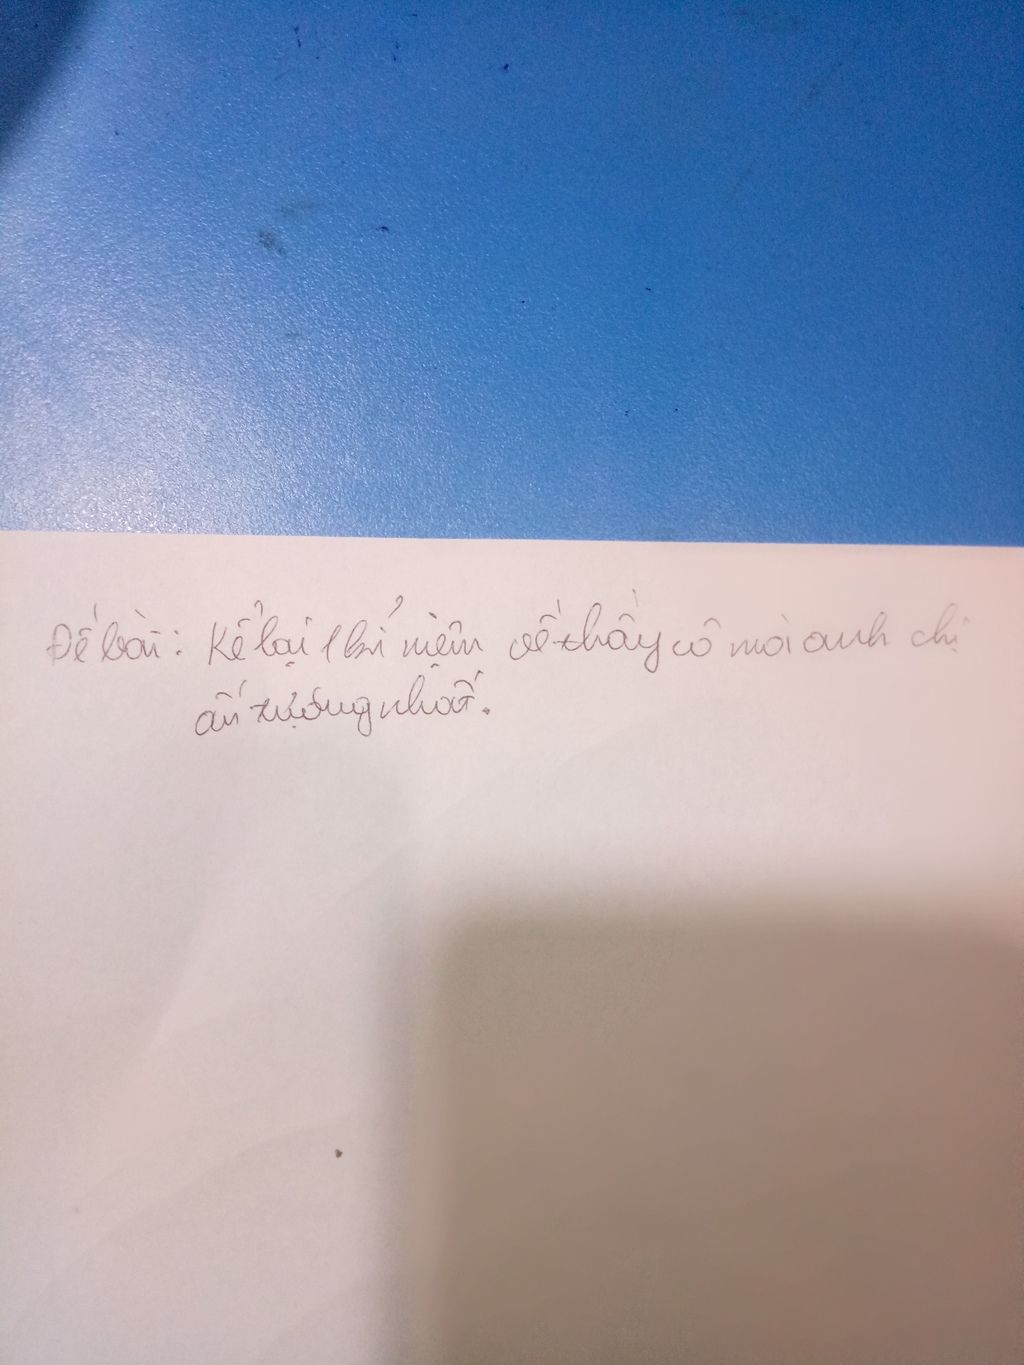 Đề bài: Kể lại 1 kỉ niệm về thầy cô mà anh chị
ấn tượng nhất.